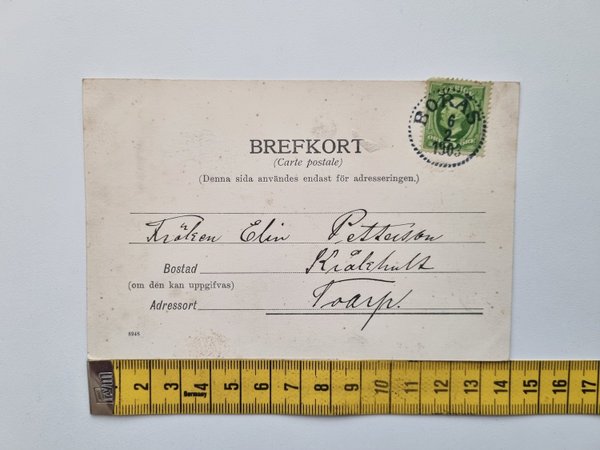 BORÅS
6
2
1903
BREFKORT
(Carte postale)
(Denna sida användes endast för adresseringen.)
Fröken Elin Petterson
Bostad Kråkhult
(om den kan uppgifvas)
Adressort Toarp.
8948
2 3 4 5 6 7 8 9 10 11 12 13 14 15 16 17
Germany